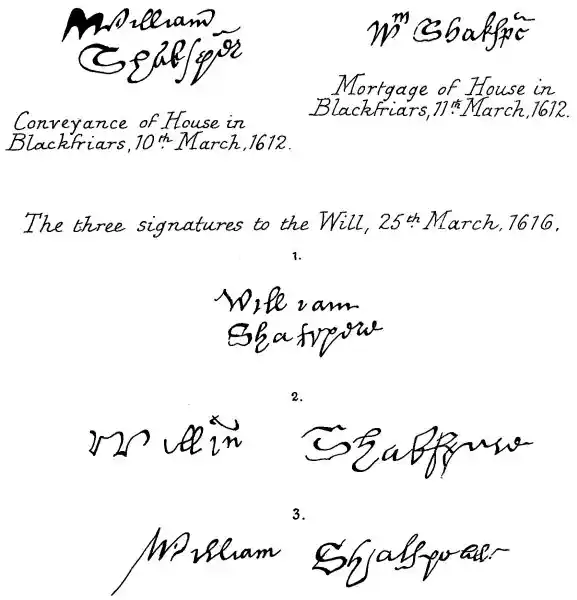 William
Shakspēr
Wm Shakspē
Conveyance of House in
Blackfriars, 10th March, 1612.
Mortgage of House in
Blackfriars, 11th March, 1612.
The three signatures to the Will, 25th March, 1616.
1.
William
Shakspere
2.
Willm Shakspere
3.
William Shakspeare